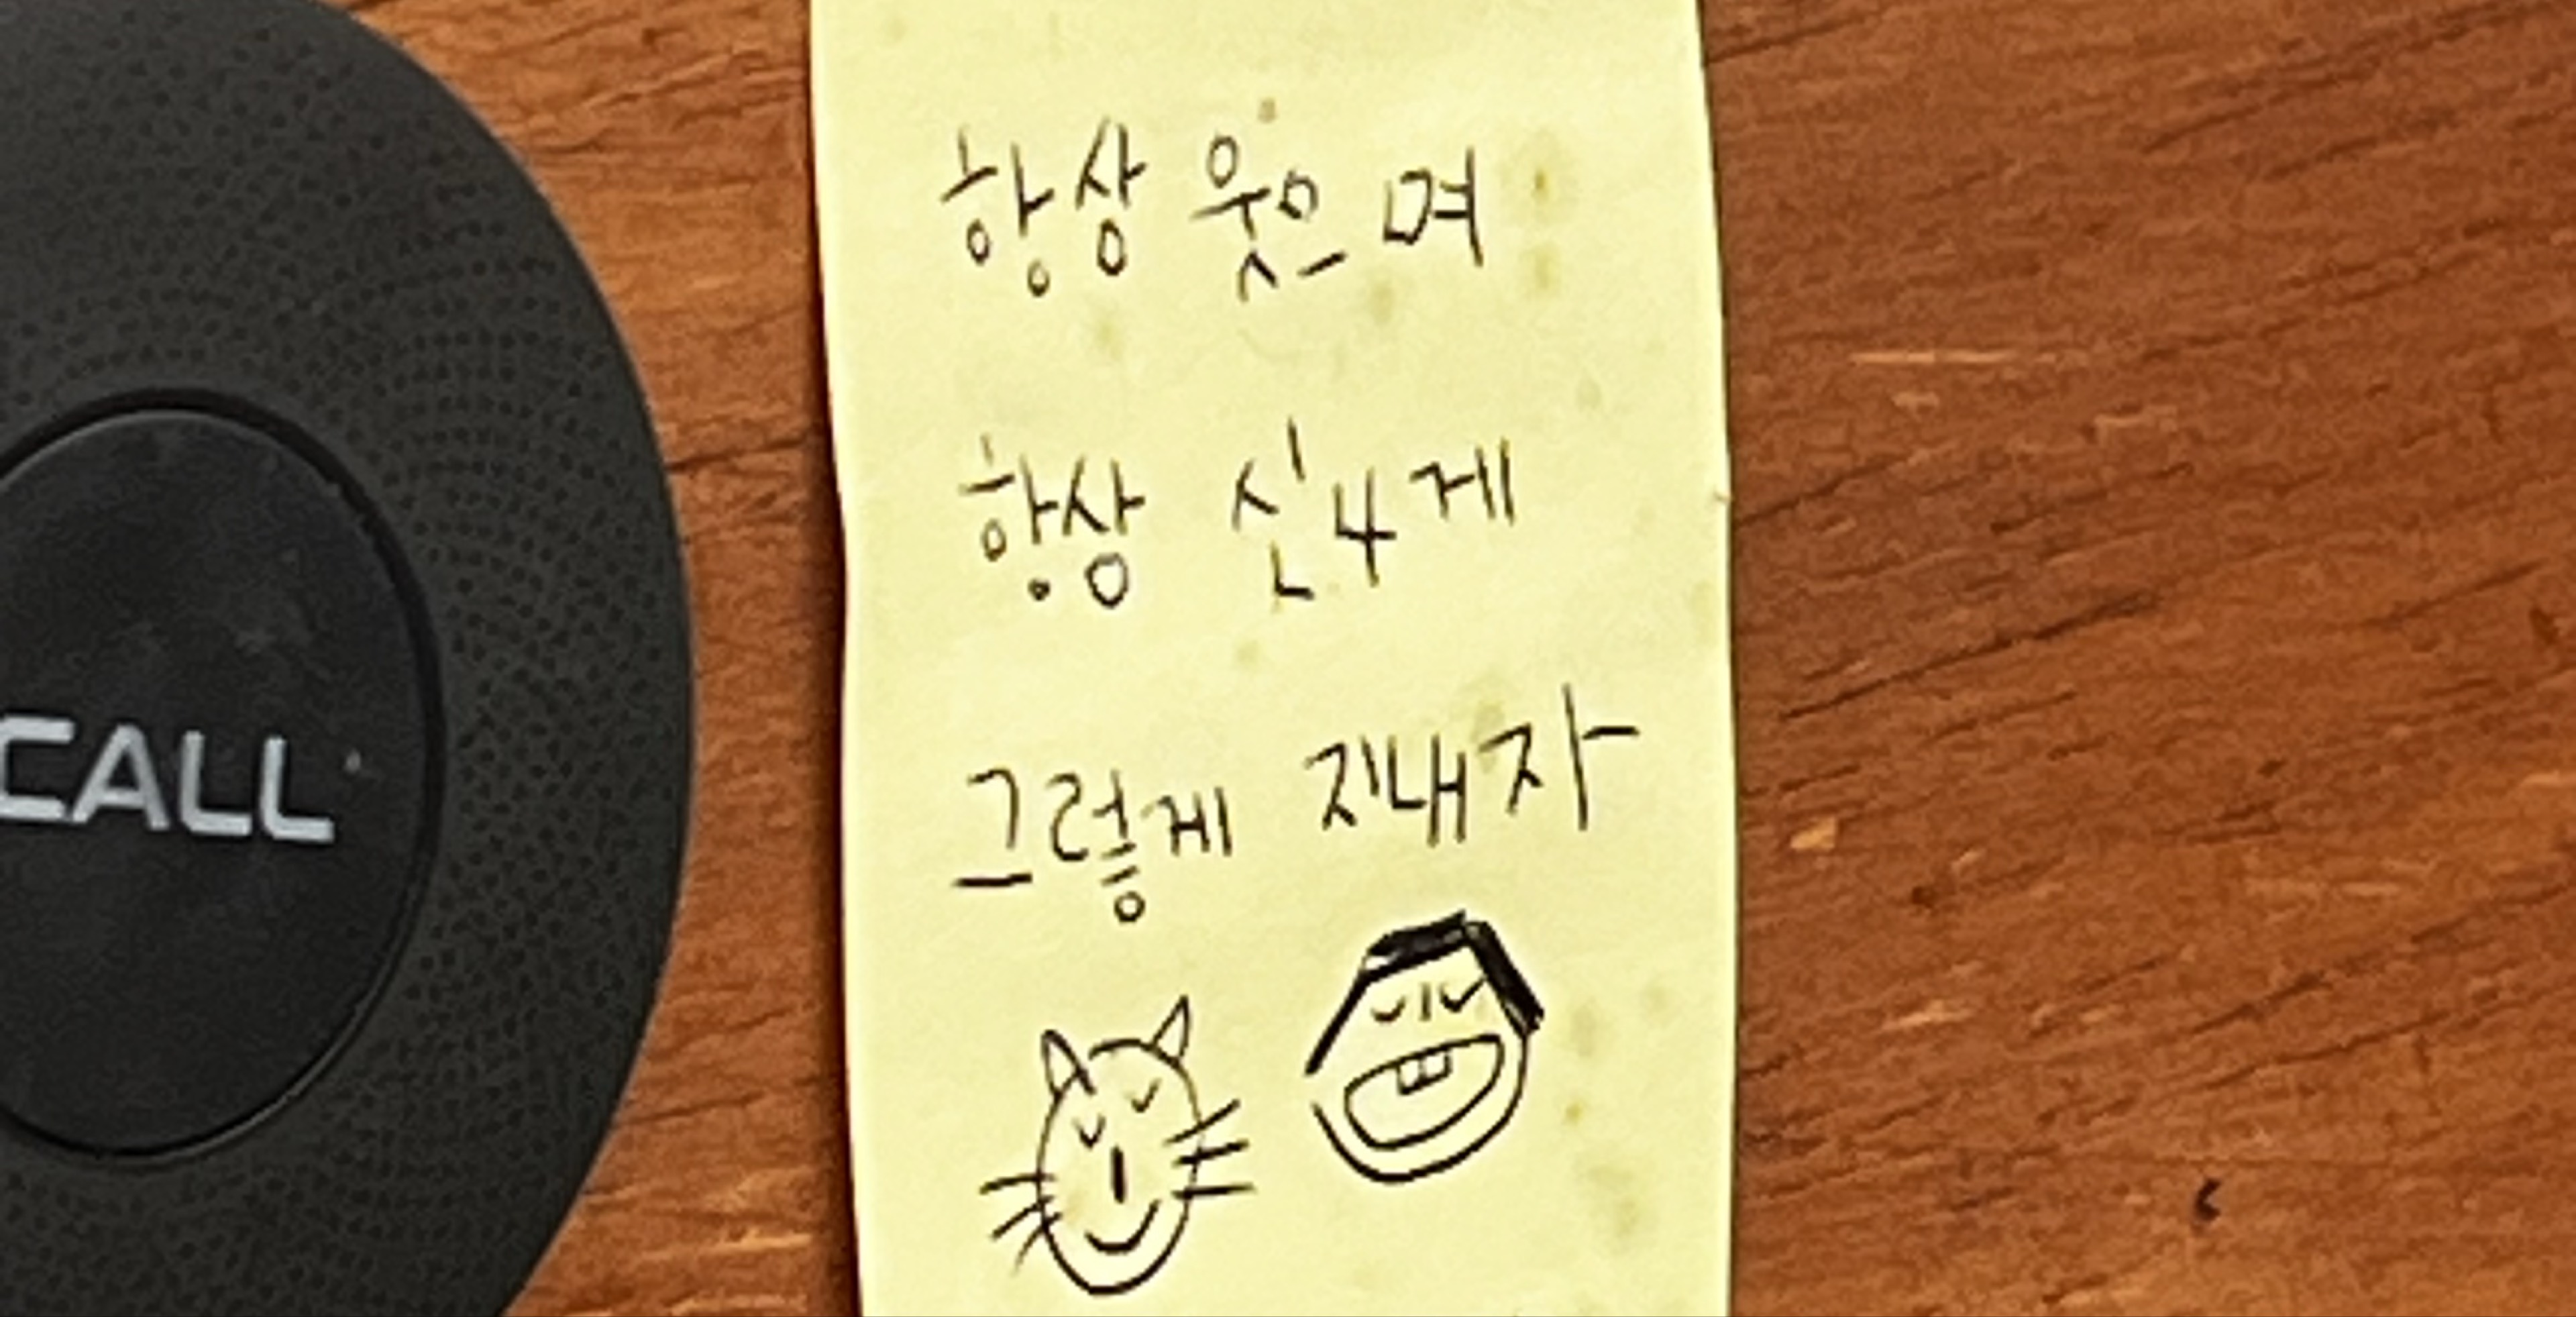 CALL
항상 웃으며
항상 신나게
그렇게 지내자